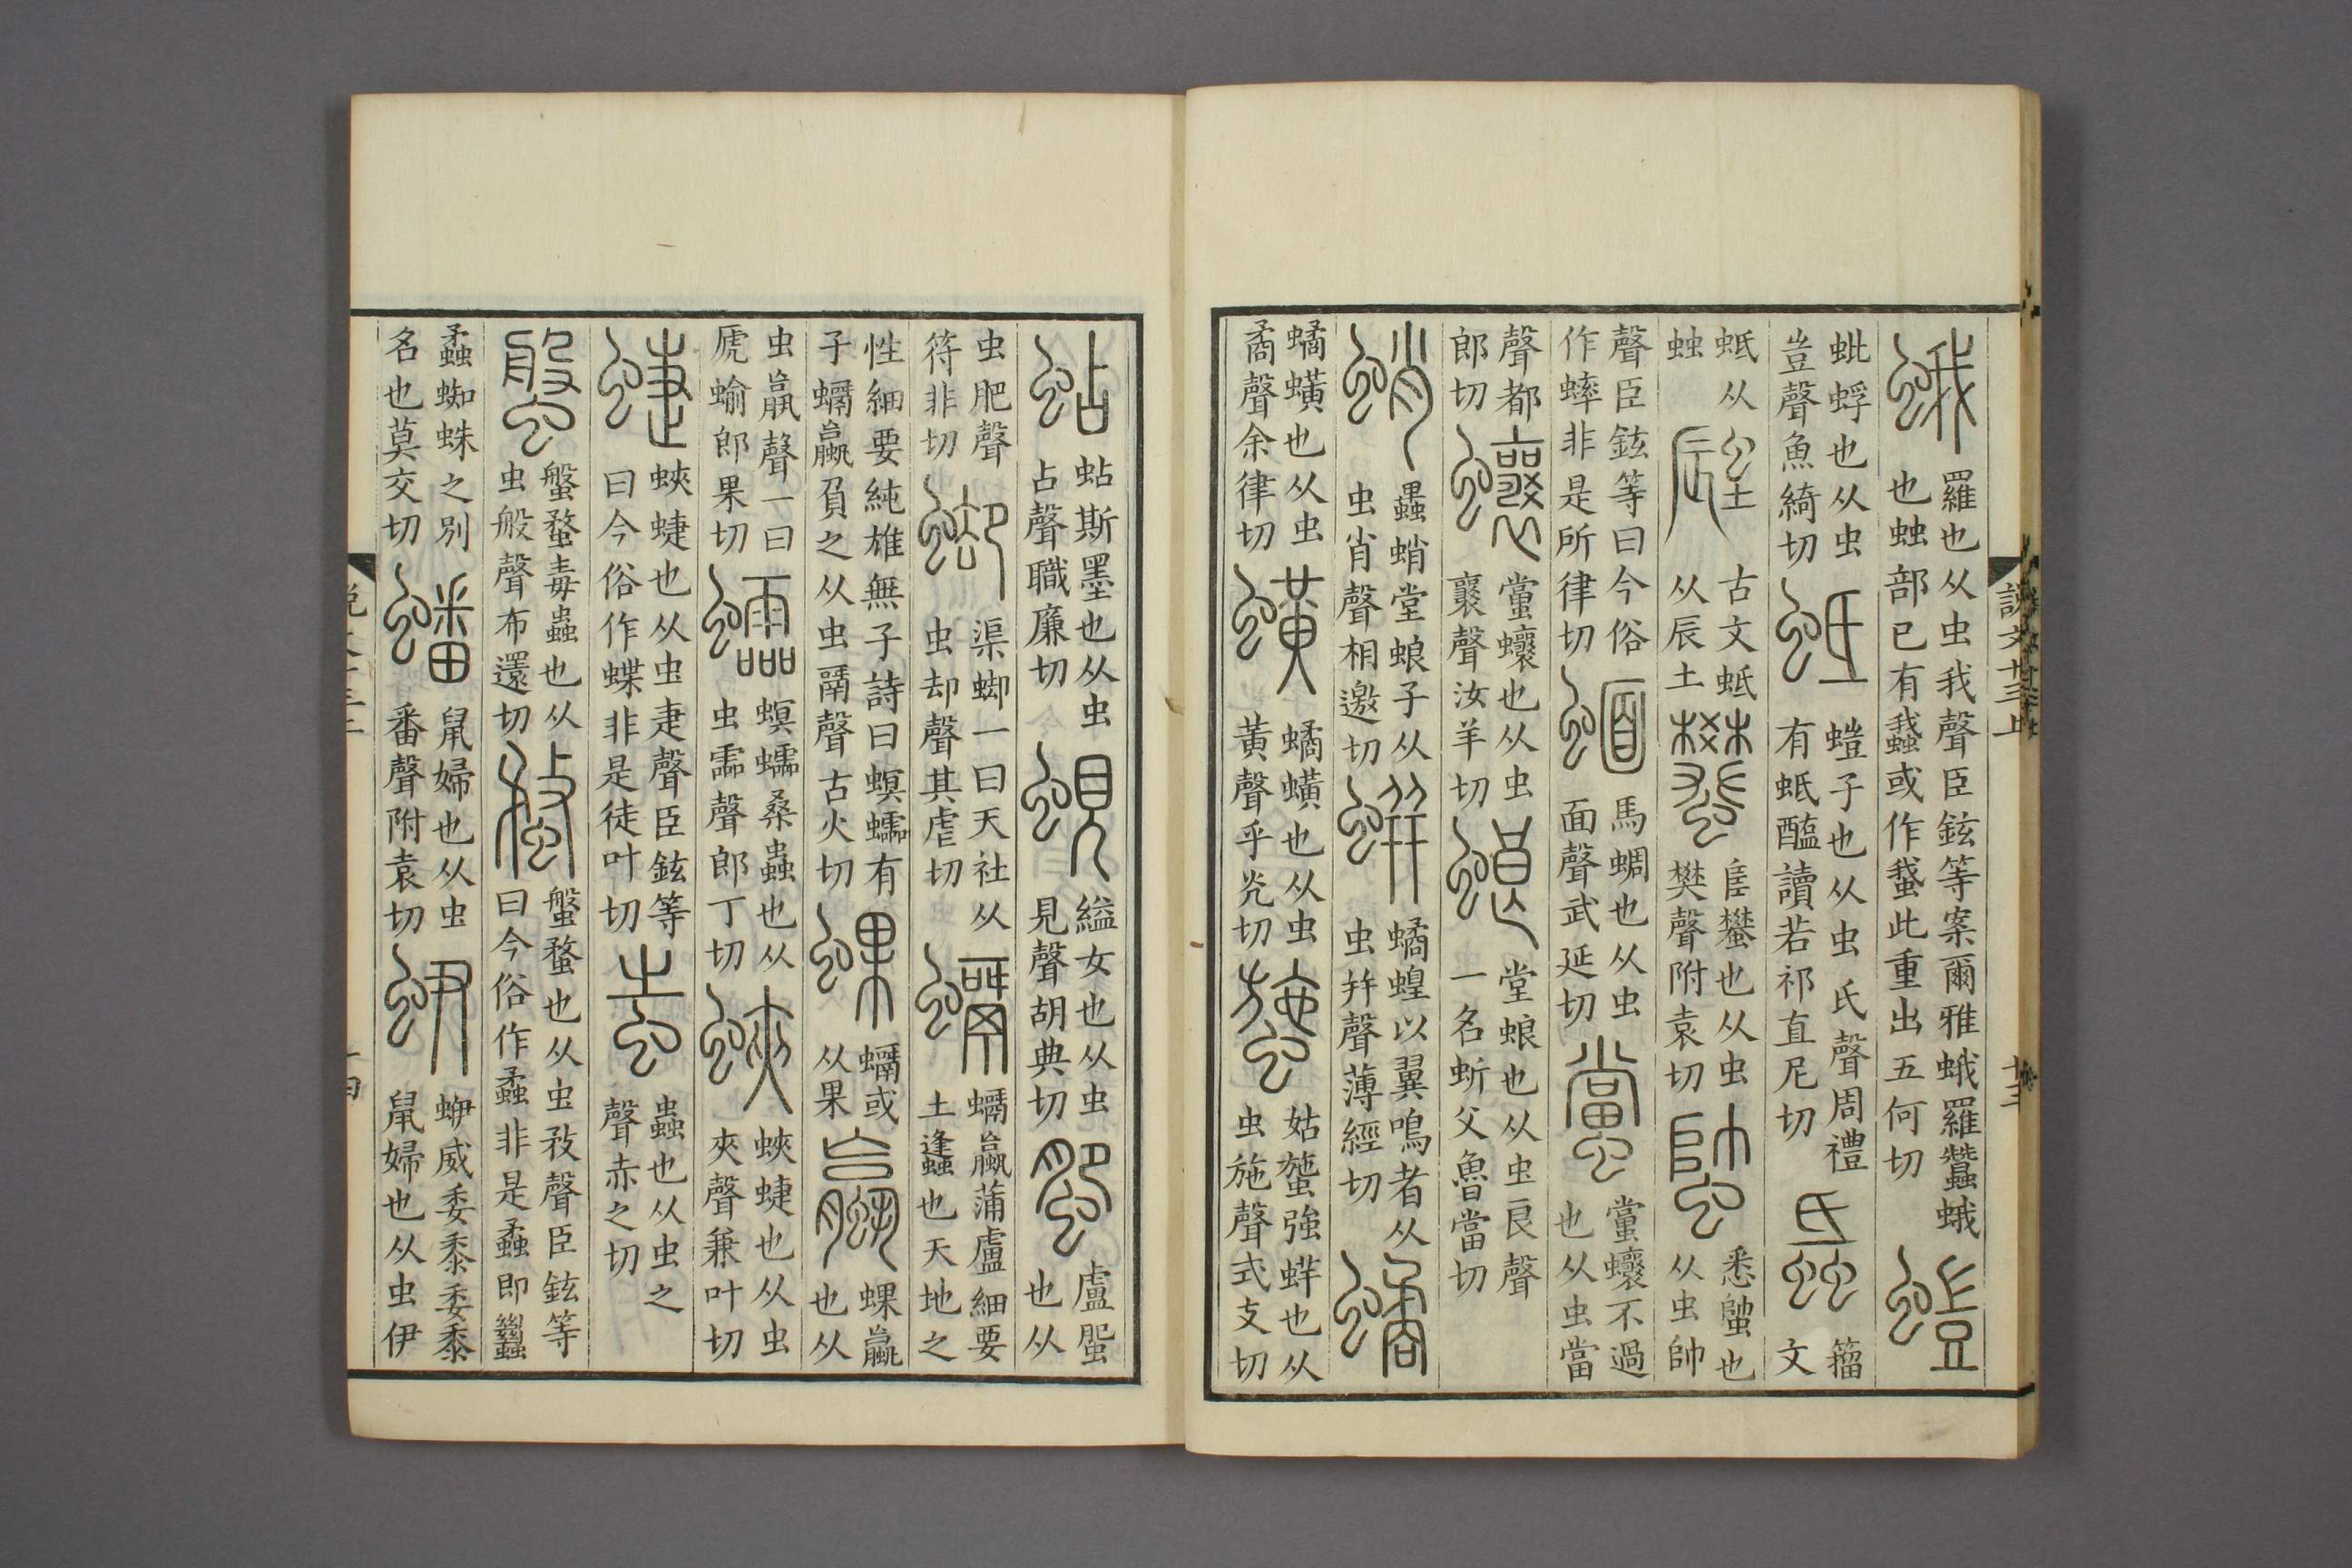 蛾 羅也从虫我聲臣鉉等案爾雅蛾羅蠶蛾也䖵部已有䘉或作䖸此重出五何切 螘
蚍蜉也从虫豈聲魚綺切 蚳 螘子也从虫氐聲周禮有蚳醢讀若祁直尼切 𧖑 籒文
蚳从䖵 𡒅 古文蚳从辰土 蠜 𨸏蠜也从虫樊聲附袁切 䗦 悉䗦也从虫帥
聲臣鉉等曰今俗作蟀非是所律切 蝒 馬蜩也从虫面聲武延切 蟷 蟷蠰不過也从虫當
聲都郎切 蠰 蟷蠰也从虫襄聲汝羊切 蜋 堂蜋也从虫良聲一名蚚父魯當切
蛸 蟲蛸堂蜋子从虫肖聲相邀切 蛢 𧑐蝗以翼鳴者从虫并聲薄經切 𧑐
𧑐蟥也从虫矞聲余律切 蟥 𧑐蟥也从虫黃聲乎光切 䗐 姑䗐強蛘也从虫施聲式支切
說文十三上
十三
蛅 蛅斯墨也从虫占聲職廉切 蜆 縊女也从虫見聲胡典切 蜰 盧蜰也从
虫肥聲符非切 𧍕 渠𧍕一曰天社从虫却聲其虐切 𧓏 𧓏蠃蒲盧細要土蠭也天地之
性細要純雄無子詩曰螟蠕有子𧓏蠃負之从虫聲古火切 蜾 𧓏或从果 蠃 蜾蠃也从
虫𦝠聲一曰虒蝓郎果切 𧕅 螟蠕桑蟲也从虫霝聲郎丁切 蛺 蛺蜨也从虫夾聲兼叶切
蜨 蛺蜨也从虫疌聲臣鉉等曰今俗作蝶非是徒叶切 蚩 蟲也从虫之聲赤之切
螌 螌蝥毒蟲也从虫般聲布還切 蝥 螌蝥也从虫敄聲臣鉉等曰今俗作蟊非是蟊即蠿
蟊蜘蛛之別名也莫交切 蟠 鼠婦也从虫番聲附袁切 蛜 蛜威委黍委黍鼠婦也从虫伊